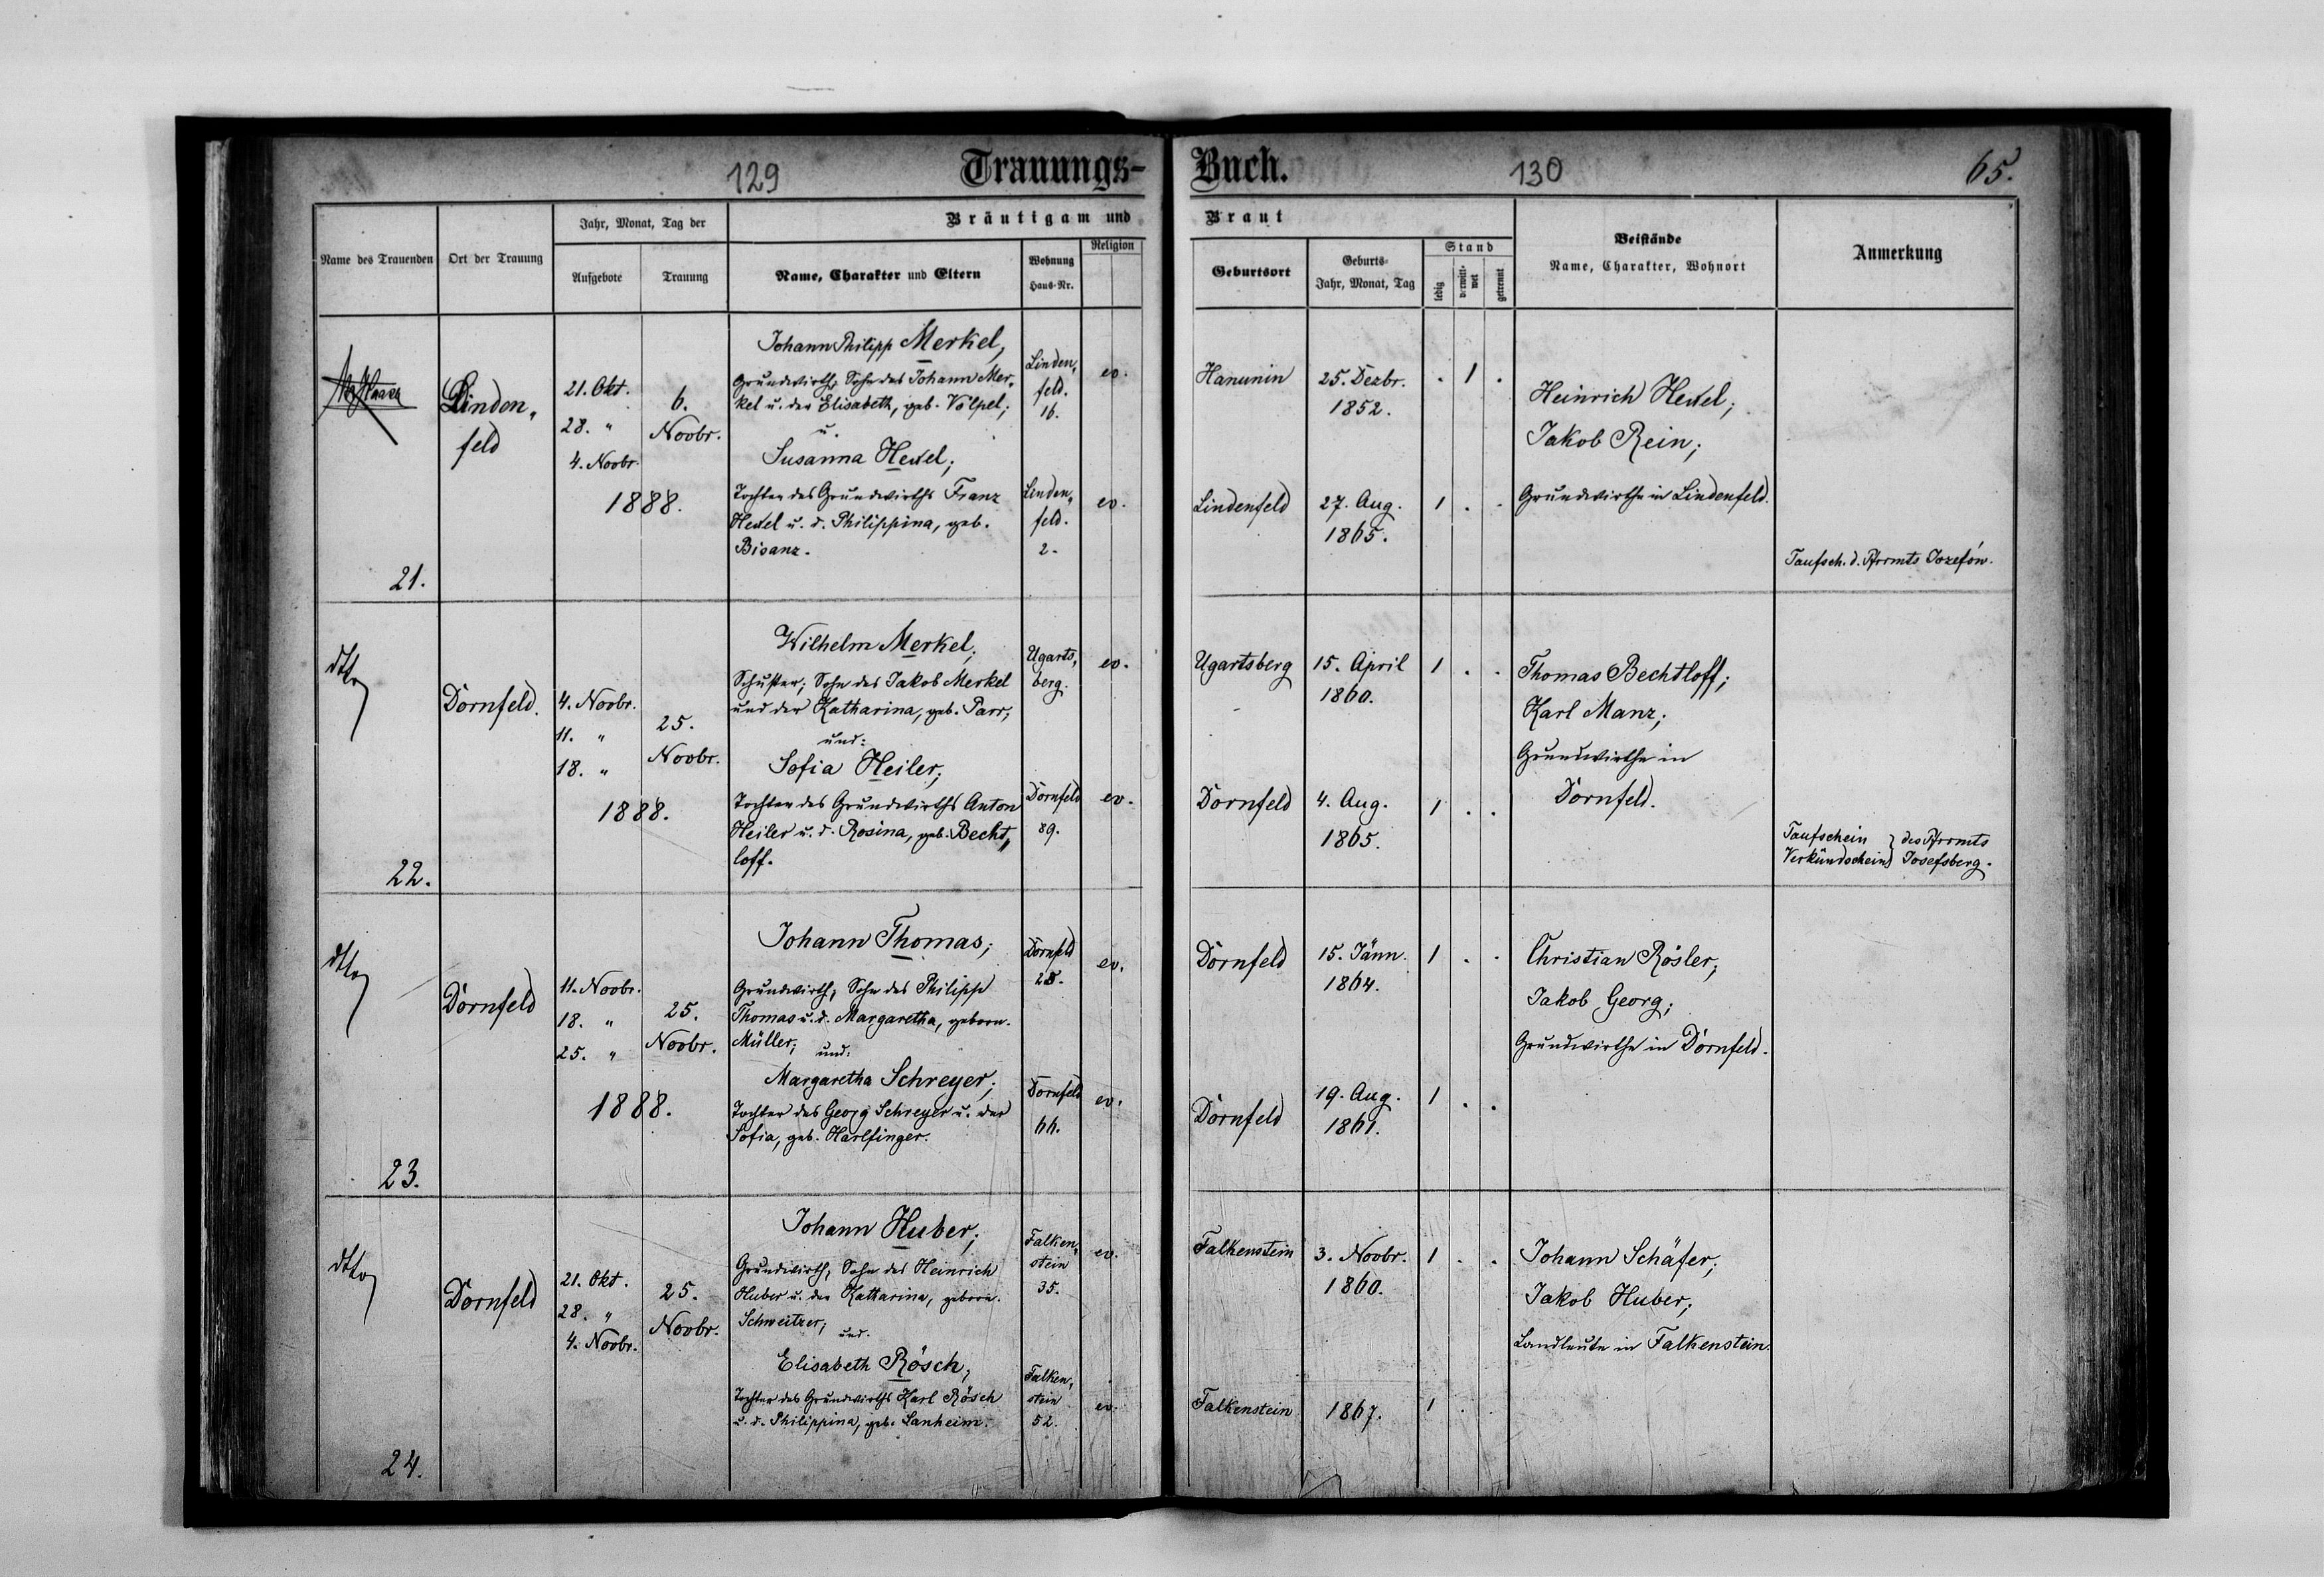 129
Trauungs-
Buch.
130
65.
Bräutigam und
Braut
Name des Trauenden
Ort der Trauung
Jahr, Monat, Tag der
Aufgebote
Trauung
Name, Charakter und Eltern
Wohnung
Haus-Nr.
Religion
Geburtsort
Geburts-
Jahr, Monat, Tag
Stand
ledig
verwitt-
wet
getrennt
Beistände
Name, Charakter, Wohnort
Anmerkung
21.
Linden„
feld
21. Okt.
28. "
4. Novbr.
6.
Novbr.
1888.
Johann Philipp Merkel,
Grundwirth, Sohn des Johann Mer„
kel u. der Elisabeth, geb. Völpel;
u.
Susanna Hexel;
Tochter des Grundwirths Franz
Hexel u. d. Philippina, geb.
Bisanz.
Linden„
feld.
16.
ev.
Linden„
feld.
2.
ev.
Hanunin
25. Dezbr.
1852.
. 1 .
Lindenfeld
27. Aug.
1865.
1 . .
Heinrich Hexel;
Jakob Rein;
Grundwirthe in Lindenfeld.
Taufsch. d. Pfrrmts Josefów.
22.
dtto
Dornfeld.
4. Novbr.
11. "
18. "
25.
Novbr.
1888.
Wilhelm Merkel;
Schuster; Sohn des Jakob Merkel
und der Katharina, geb. Parr;
und:
Sofia Heiler;
Tochter des Grundwirths Anton
Heiler u. d. Rosina, geb. Becht„
loff.
Ugarts„
berg.
ev.
Dornfeld
89.
ev.
Ugartsberg
15. April
1860.
1 . .
Dornfeld
4. Aug.
1865.
1 . .
Thomas Bechtloff;
Karl Manz;
Grundwirthe in
Dornfeld.
Taufschein } des Pfrrmts
Verkündschein } Josefsberg.
23.
dtto
Dornfeld
11. Novbr.
18. "
25. "
25.
Novbr.
1888.
Johann Thomas;
Grundwirth, Sohn des Philipp
Thomas u. d. Margaretha, geborn.
Müller; und:
Margaretha Schreyer;
Tochter des Georg Schreyer u. der
Sofia, geb. Harlfinger.
Dornfeld
ev.
Dornfeld
66.
ev.
Dornfeld
15. Jänn.
1864.
1 . .
Dornfeld
19. Aug.
1861.
1 . .
Christian Rösler;
Jakob Georg;
Grundwirthe in Dornfeld.
24.
dtto
Dornfeld
21. Okt.
28. "
4. Novbr.
25.
Novbr.
Johann Huber;
Grundwirth, Sohn des Heinrich
Huber u. der Katharina, geborn.
Schweitzer; und.
Elisabeth Rösch,
Tochter des Grundwirths Karl Rösch
u. d. Philippina, geb. Lanheim.
Falken„
stein
35.
ev.
Falken„
stein
52.
ev.
Falkenstein
3. Novbr.
1860.
1 . .
Falkenstein
1867.
1 .
Johann Schäfer;
Jakob Huber;
Landleute in Falkenstein.